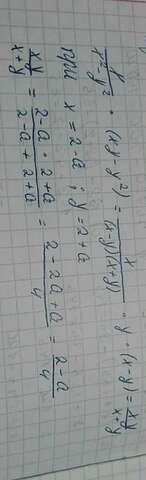 x/(x²-y²) · (xy-y²) = x/((x-y)(x+y)) · y · (x-y) = xy/(x+y)
при x = 2-a ; y = 2+a
xy/(x+y) = (2-a · 2+a)/(2-a+2+a) = (2-2a+a)/4 = (2-a)/4